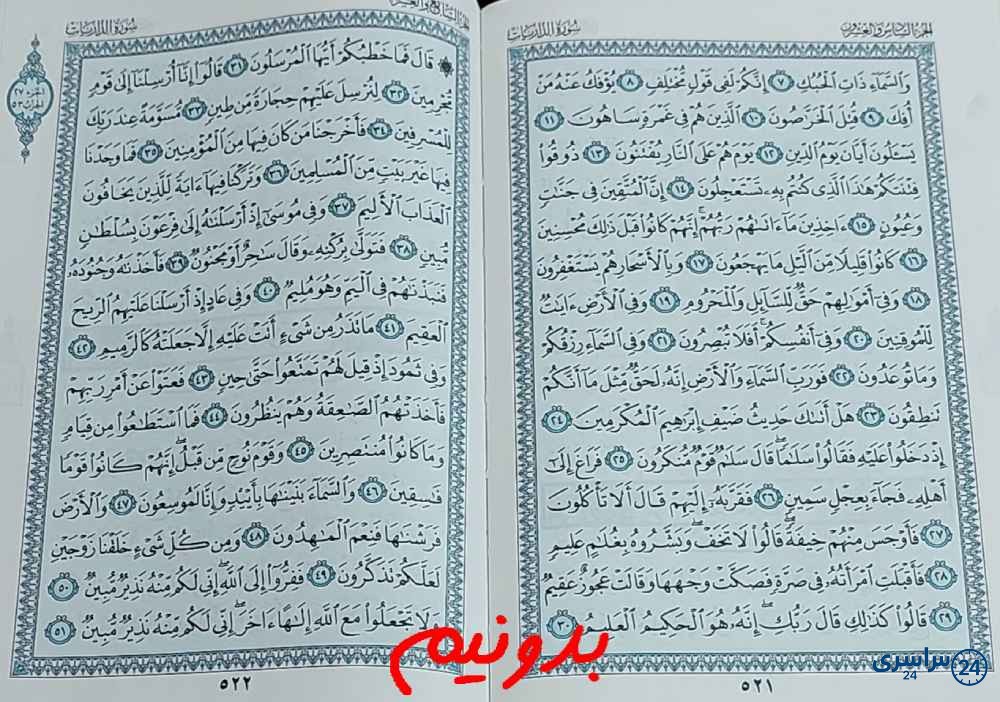 الجزء السادس والعشرون
سورة الذاريات
وَٱلسَّمَآءِ ذَاتِ ٱلْحُبُكِ ٧ إِنَّكُمْ لَفِى قَوْلٍ مُّخْتَلِفٍ ٨ يُؤْفَكُ عَنْهُ مَنْ
أُفِكَ ٩ قُتِلَ ٱلْخَرَّٰصُونَ ١٠ ٱلَّذِينَ هُمْ فِى غَمْرَةٍ سَاهُونَ ١١
يَسْـَٔلُونَ أَيَّانَ يَوْمُ ٱلدِّينِ ١٢ يَوْمَ هُمْ عَلَى ٱلنَّارِ يُفْتَنُونَ ١٣ ذُوقُوا۟
فِتْنَتَكُمْ هَٰذَا ٱلَّذِى كُنتُم بِهِۦ تَسْتَعْجِلُونَ ١٤ إِنَّ ٱلْمُتَّقِينَ فِى جَنَّٰتٍ
وَعُيُونٍ ١٥ ءَاخِذِينَ مَآ ءَاتَىٰهُمْ رَبُّهُمْ ۚ إِنَّهُمْ كَانُوا۟ قَبْلَ ذَٰلِكَ مُحْسِنِينَ
١٦ كَانُوا۟ قَلِيلًا مِّنَ ٱلَّيْلِ مَا يَهْجَعُونَ ١٧ وَبِٱلْأَسْحَارِ هُمْ يَسْتَغْفِرُونَ
١٨ وَفِىٓ أَمْوَٰلِهِمْ حَقٌّ لِّلسَّآئِلِ وَٱلْمَحْرُومِ ١٩ وَفِى ٱلْأَرْضِ ءَايَٰتٌ
لِّلْمُوقِنِينَ ٢٠ وَفِىٓ أَنفُسِكُمْ ۚ أَفَلَا تُبْصِرُونَ ٢١ وَفِى ٱلسَّمَآءِ رِزْقُكُمْ
وَمَا تُوعَدُونَ ٢٢ فَوَرَبِّ ٱلسَّمَآءِ وَٱلْأَرْضِ إِنَّهُۥ لَحَقٌّ مِّثْلَ مَآ أَنَّكُمْ
تَنطِقُونَ ٢٣ هَلْ أَتَىٰكَ حَدِيثُ ضَيْفِ إِبْرَٰهِيمَ ٱلْمُكْرَمِينَ ٢٤
إِذْ دَخَلُوا۟ عَلَيْهِ فَقَالُوا۟ سَلَٰمًا ۖ قَالَ سَلَٰمٌ قَوْمٌ مُّنكَرُونَ ٢٥ فَرَاغَ إِلَىٰٓ
أَهْلِهِۦ فَجَآءَ بِعِجْلٍ سَمِينٍ ٢٦ فَقَرَّبَهُۥٓ إِلَيْهِمْ قَالَ أَلَا تَأْكُلُونَ
٢٧ فَأَوْجَسَ مِنْهُمْ خِيفَةً ۖ قَالُوا۟ لَا تَخَفْ ۖ وَبَشَّرُوهُ بِغُلَٰمٍ عَلِيمٍ
٢٨ فَأَقْبَلَتِ ٱمْرَأَتُهُۥ فِى صَرَّةٍ فَصَكَّتْ وَجْهَهَا وَقَالَتْ عَجُوزٌ عَقِيمٌ
٢٩ قَالُوا۟ كَذَٰلِكِ قَالَ رَبُّكِ ۖ إِنَّهُۥ هُوَ ٱلْحَكِيمُ ٱلْعَلِيمُ ٣٠
٥٢١
سورة الذاريات
الجزء ٢٧
الحزب ٥٣
۞ قَالَ فَمَا خَطْبُكُمْ أَيُّهَا ٱلْمُرْسَلُونَ ٣١ قَالُوٓا۟ إِنَّآ أُرْسِلْنَآ إِلَىٰ قَوْمٍ
مُّجْرِمِينَ ٣٢ لِنُرْسِلَ عَلَيْهِمْ حِجَارَةً مِّن طِينٍ ٣٣ مُّسَوَّمَةً عِندَ رَبِّكَ
لِلْمُسْرِفِينَ ٣٤ فَأَخْرَجْنَا مَن كَانَ فِيهَا مِنَ ٱلْمُؤْمِنِينَ ٣٥ فَمَا وَجَدْنَا
فِيهَا غَيْرَ بَيْتٍ مِّنَ ٱلْمُسْلِمِينَ ٣٦ وَتَرَكْنَا فِيهَآ ءَايَةً لِّلَّذِينَ يَخَافُونَ
ٱلْعَذَابَ ٱلْأَلِيمَ ٣٧ وَفِى مُوسَىٰٓ إِذْ أَرْسَلْنَٰهُ إِلَىٰ فِرْعَوْنَ بِسُلْطَٰنٍ
مُّبِينٍ ٣٨ فَتَوَلَّىٰ بِرُكْنِهِۦ وَقَالَ سَٰحِرٌ أَوْ مَجْنُونٌ ٣٩ فَأَخَذْنَٰهُ وَجُنُودَهُۥ
فَنَبَذْنَٰهُمْ فِى ٱلْيَمِّ وَهُوَ مُلِيمٌ ٤٠ وَفِى عَادٍ إِذْ أَرْسَلْنَا عَلَيْهِمُ ٱلرِّيحَ
ٱلْعَقِيمَ ٤١ مَا تَذَرُ مِن شَىْءٍ أَتَتْ عَلَيْهِ إِلَّا جَعَلَتْهُ كَٱلرَّمِيمِ ٤٢
وَفِى ثَمُودَ إِذْ قِيلَ لَهُمْ تَمَتَّعُوا۟ حَتَّىٰ حِينٍ ٤٣ فَعَتَوْا۟ عَنْ أَمْرِ رَبِّهِمْ
فَأَخَذَتْهُمُ ٱلصَّٰعِقَةُ وَهُمْ يَنظُرُونَ ٤٤ فَمَا ٱسْتَطَٰعُوا۟ مِن قِيَامٍ
وَمَا كَانُوا۟ مُنتَصِرِينَ ٤٥ وَقَوْمَ نُوحٍ مِّن قَبْلُ ۖ إِنَّهُمْ كَانُوا۟ قَوْمًا
فَٰسِقِينَ ٤٦ وَٱلسَّمَآءَ بَنَيْنَٰهَا بِأَيْي۟دٍ وَإِنَّا لَمُوسِعُونَ ٤٧ وَٱلْأَرْضَ
فَرَشْنَٰهَا فَنِعْمَ ٱلْمَٰهِدُونَ ٤٨ وَمِن كُلِّ شَىْءٍ خَلَقْنَا زَوْجَيْنِ
لَعَلَّكُمْ تَذَكَّرُونَ ٤٩ فَفِرُّوٓا۟ إِلَى ٱللَّهِ ۖ إِنِّى لَكُم مِّنْهُ نَذِيرٌ مُّبِينٌ ٥٠
وَلَا تَجْعَلُوا۟ مَعَ ٱللَّهِ إِلَٰهًا ءَاخَرَ ۖ إِنِّى لَكُم مِّنْهُ نَذِيرٌ مُّبِينٌ ٥١
٥٢٢
بدونیم
سراسری
24
24